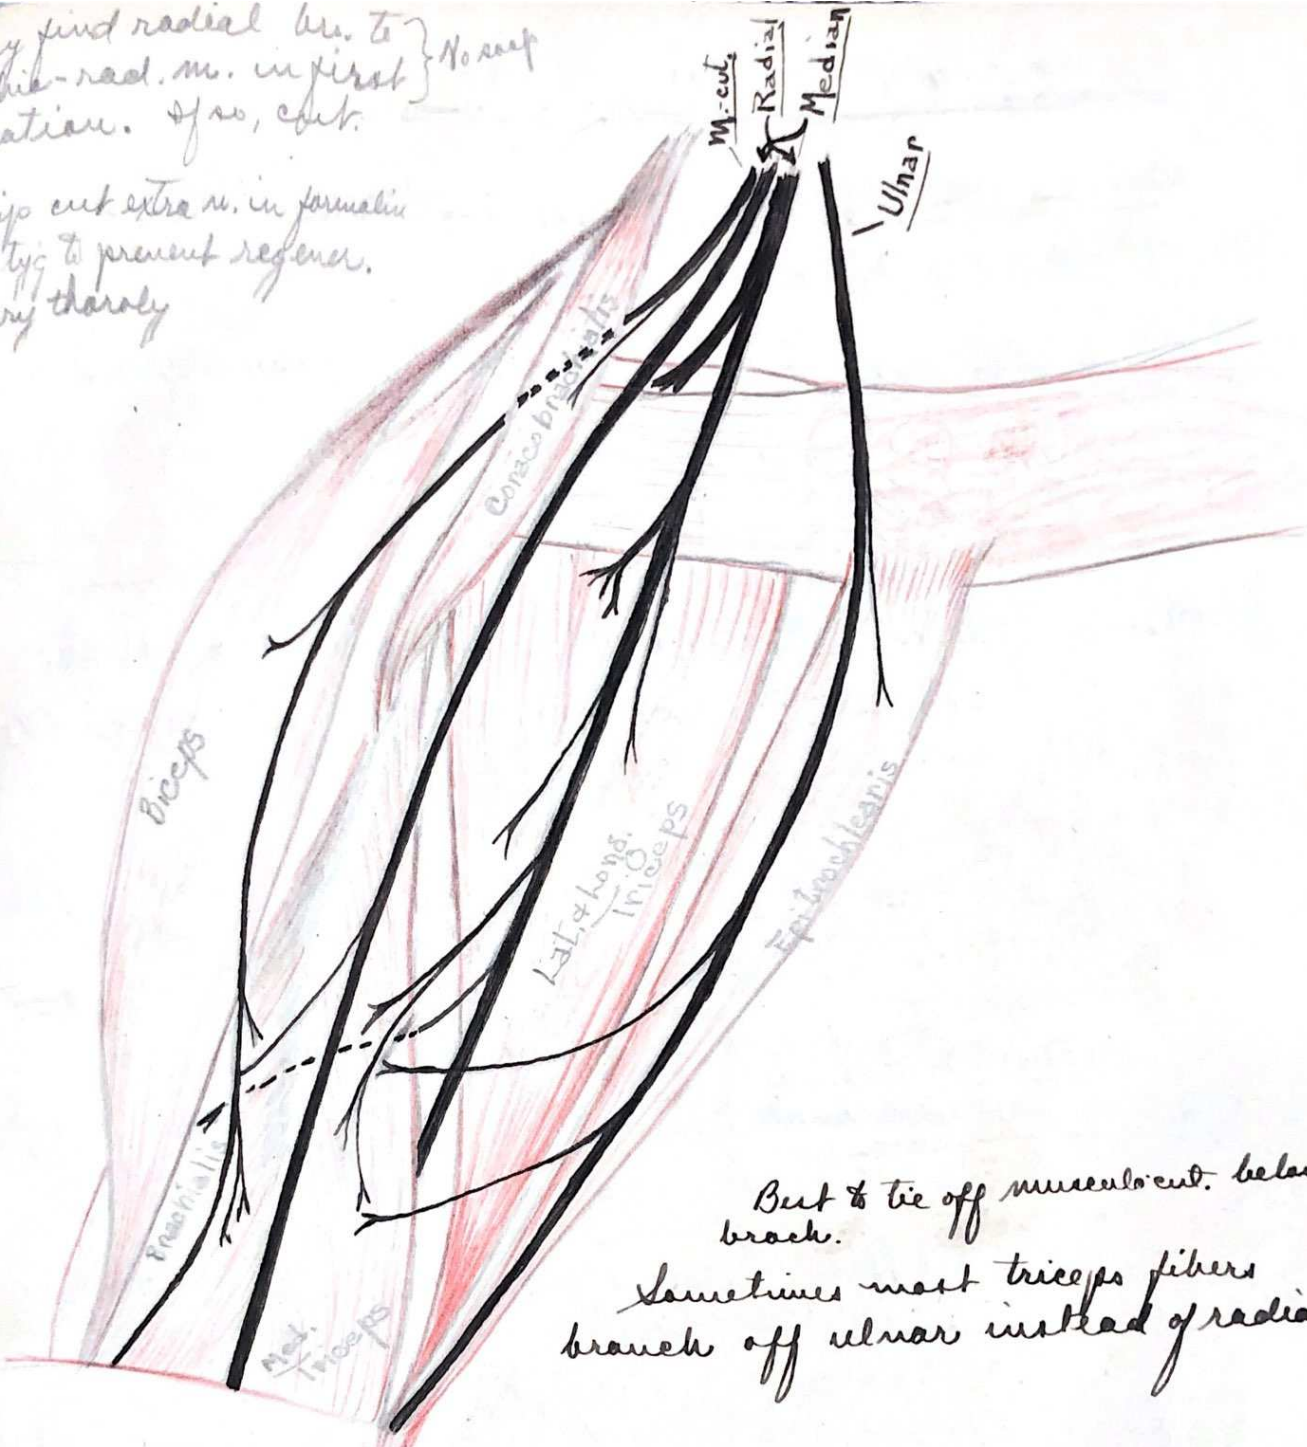 y find radial br. to
hio-rad. m. in first } No soap
ation. If so, cut.
ip cut extra n. in formalin
to prevent regener.
ry thoroly
M-cut.
Radial
Median
Ulnar
Coracobrachialis
Biceps
Lat. & Long.
Triceps
Epitrochlearis
Brachialis
Med.
Triceps
Best to tie off musculocut. below
brach.
Sometimes most triceps fibers
branch off ulnar instead of radia